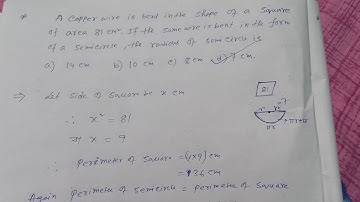 * A Copper wire is bent in the shape of a square
of area 81 cm². If the same wire is bent in the form
of a semicircle, the radius of semicircle is
a) 14 cm b) 10 cm c) 8 cm d) 7 cm
⇒ Let side of square be x cm
81
∴ x² = 81
x = 9
πr
∴ Perimeter of square = (4×9) cm
= 36 cm
Again Perimeter of semicircle = perimeter of square